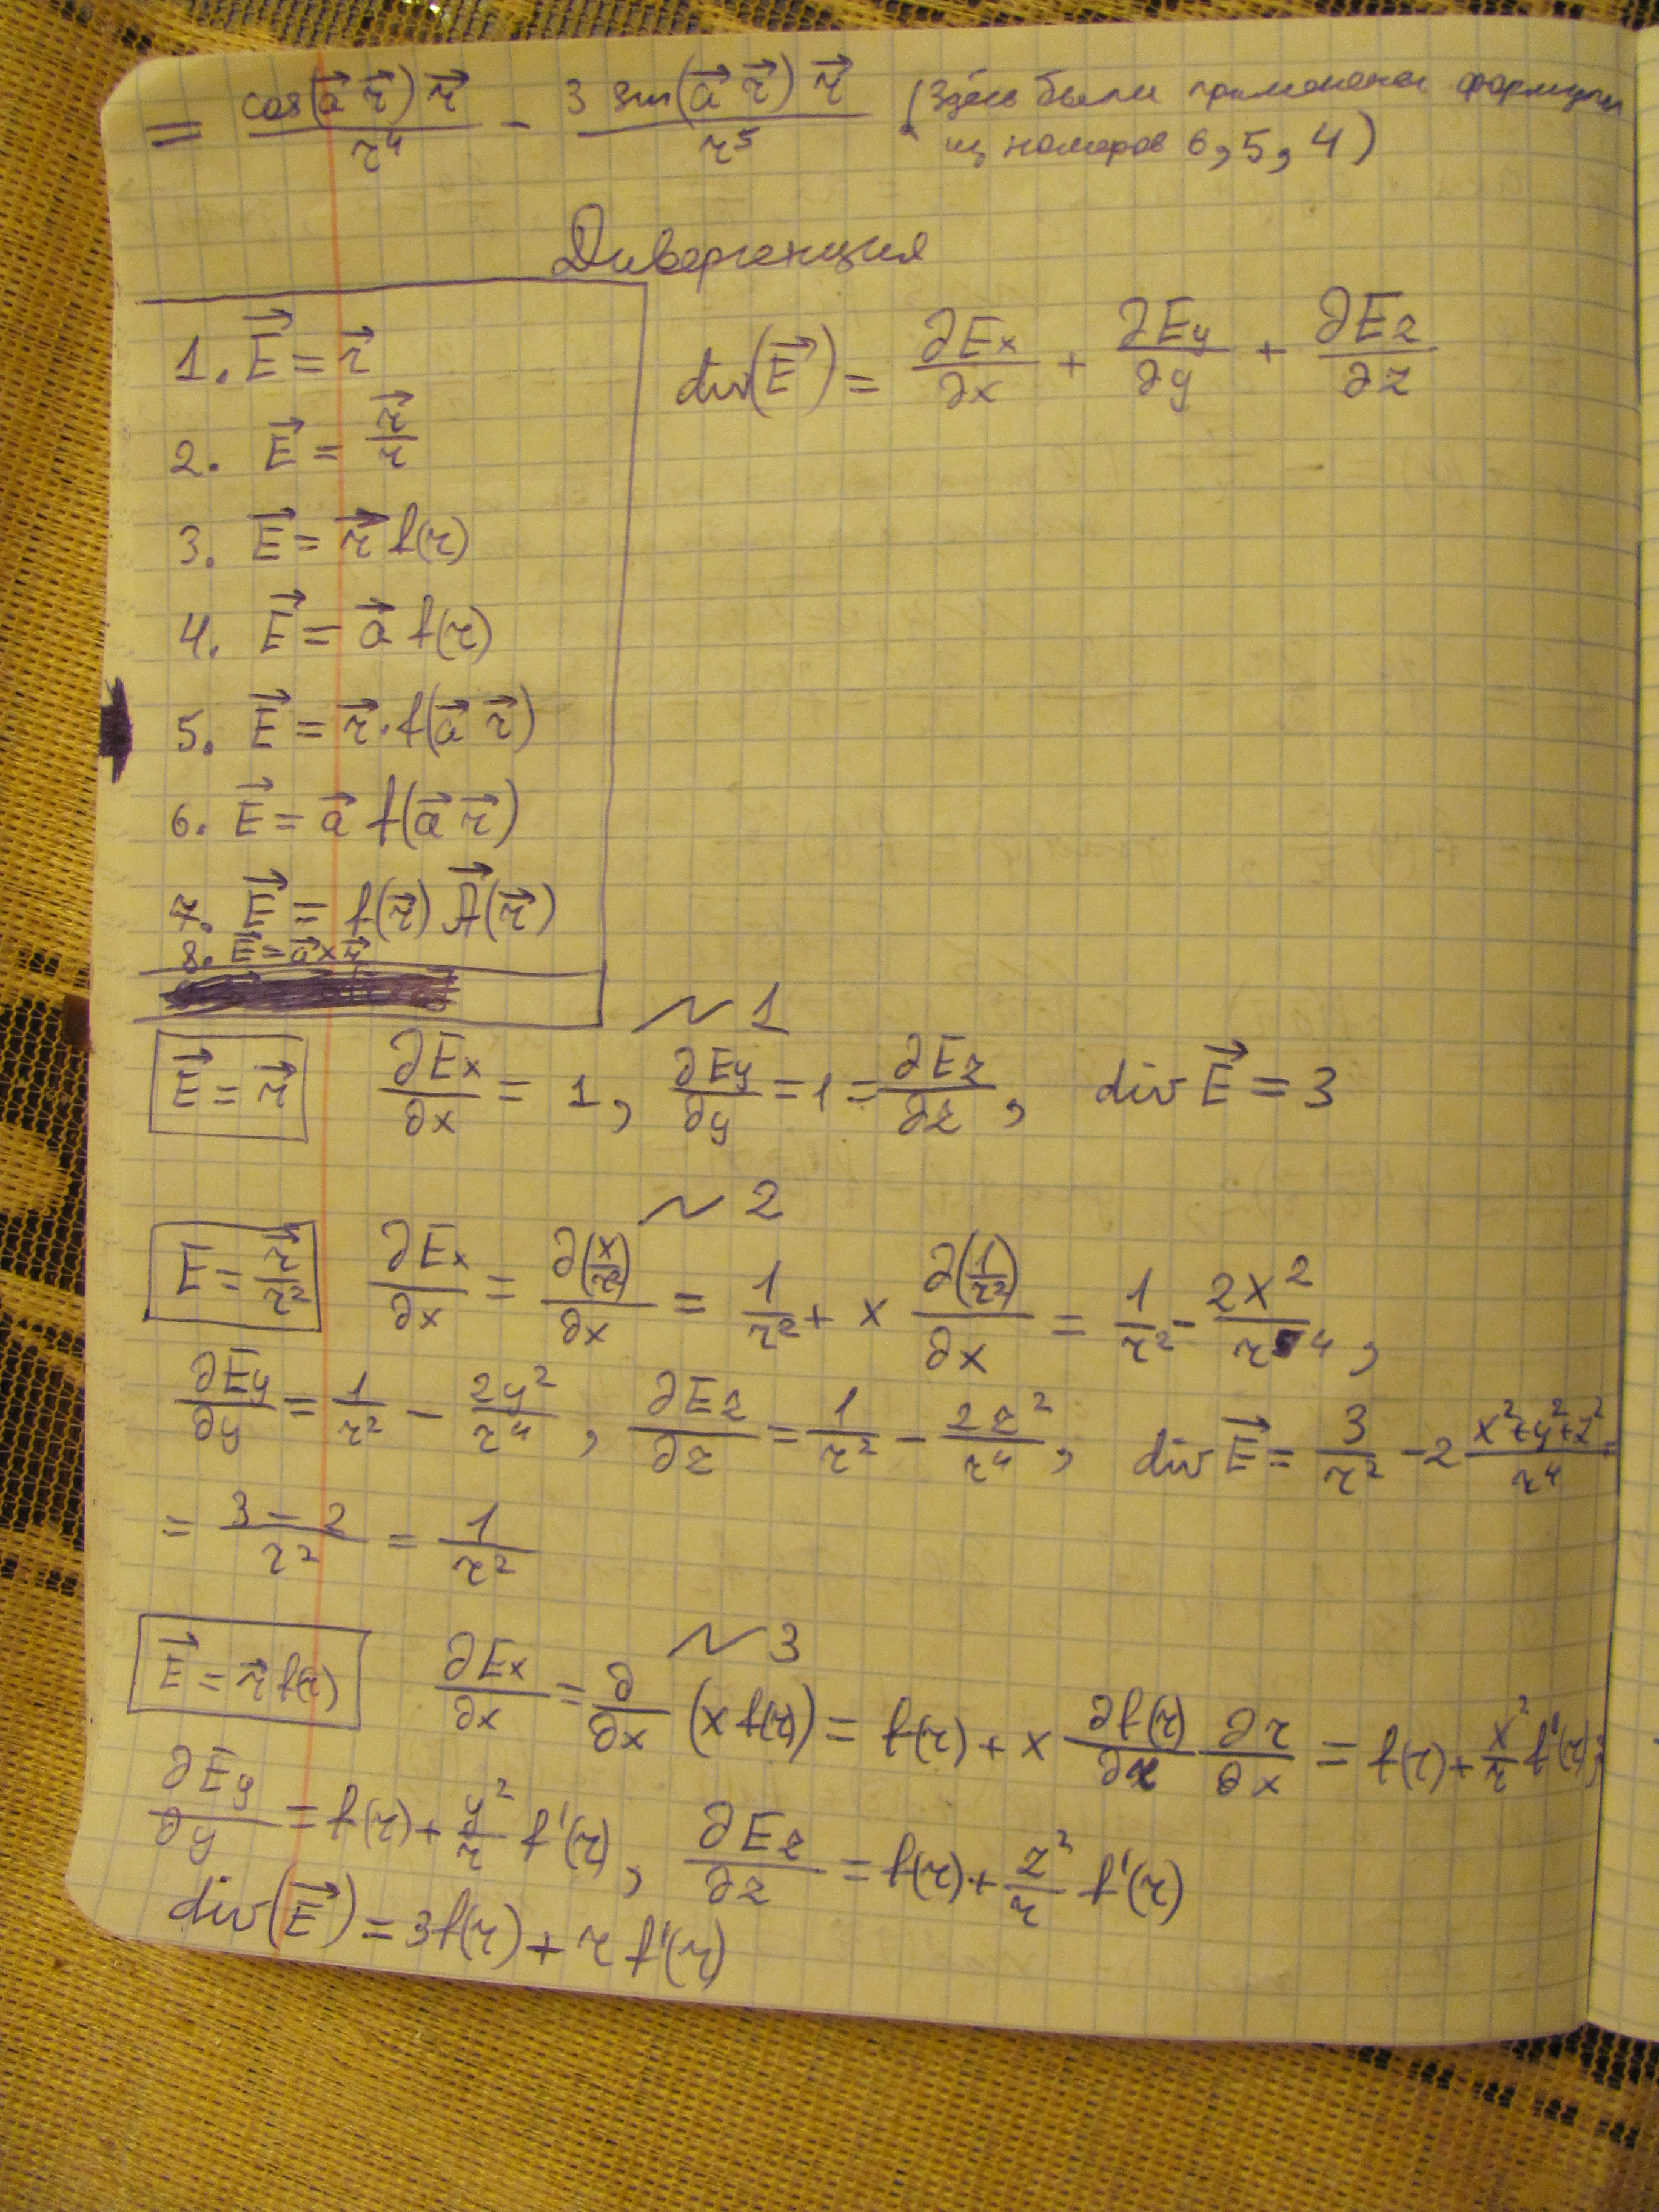 = cos(a⃗ r⃗) r⃗ / r⁴ - 3 sin(a⃗ r⃗) r⃗ / r⁵ (Здесь были применены формулы
из номеров 6, 5, 4)
Дивергенция
div(E⃗) = ∂Ex/∂x + ∂Ey/∂y + ∂Ez/∂z
1. E⃗ = r⃗
2. E⃗ = r⃗/r
3. E⃗ = r⃗ f(r)
4. E⃗ = a⃗ f(r)
5. E⃗ = r⃗·f(a⃗ r⃗)
6. E⃗ = a⃗ f(a⃗ r⃗)
7. E⃗ = f(r⃗) A⃗(r⃗)
8. E⃗ = a⃗ × r⃗
~ 1
E⃗ = r⃗ ∂Ex/∂x = 1, ∂Ey/∂y = 1 = ∂Ez/∂z, div E⃗ = 3
~ 2
E⃗ = r⃗/r² ∂Ex/∂x = ∂(x/r²)/∂x = 1/r² + x ∂(1/r²)/∂x = 1/r² - 2x²/r⁴,
∂Ey/∂y = 1/r² - 2y²/r⁴, ∂Ez/∂z = 1/r² - 2z²/r⁴, div E⃗ = 3/r² - 2 (x²+y²+z²)/r⁴ =
= (3 - 2)/r² = 1/r²
~ 3
E⃗ = r⃗ f(r) ∂Ex/∂x = ∂/∂x (x f(r)) = f(r) + x ∂f(r)/∂r ∂r/∂x = f(r) + x²/r f'(r);
∂Ey/∂y = f(r) + y²/r f'(r), ∂Ez/∂z = f(r) + z²/r f'(r)
div(E⃗) = 3f(r) + r f'(r)